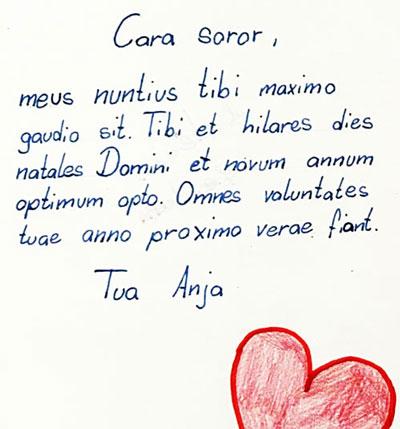 Cara soror,
meus nuntius tibi maximo
gaudio sit. Tibi et hilares dies
natales Domini et novum annum
optimum opto. Omnes voluntates
tuae anno proximo verae fiant.
Tua Anja